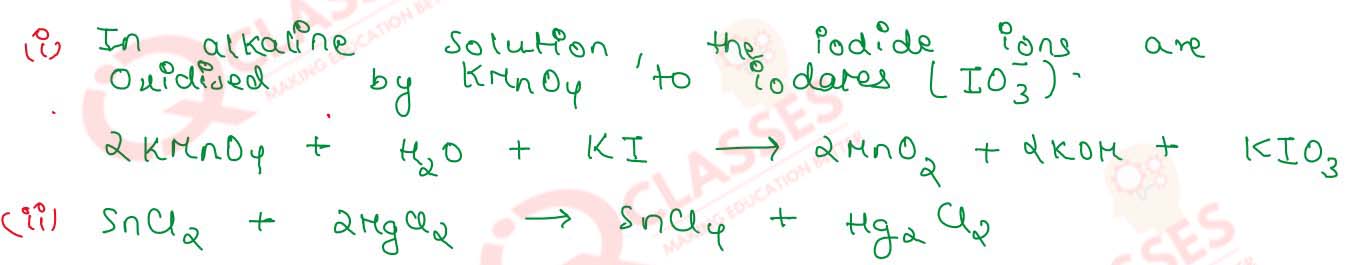 (i) In alkaline solution, the iodide ions are
Oxidised by KMnO4 to iodates (IO3-).
2KMnO4 + H2O + KI → 2MnO2 + 2KOH + KIO3
(ii) SnCl2 + 2HgCl2 → SnCl4 + Hg2Cl2
CLASSES
MAKING EDUCATION BE
CLASSES
MAKING EDUCATION
SSES